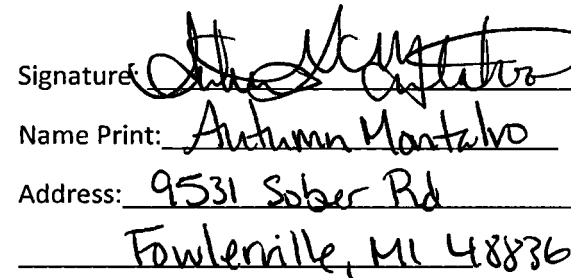 Signature:
Name Print: Autumn Montalvo
Address: 9531 Sober Rd
Fowlerville, MI 48836